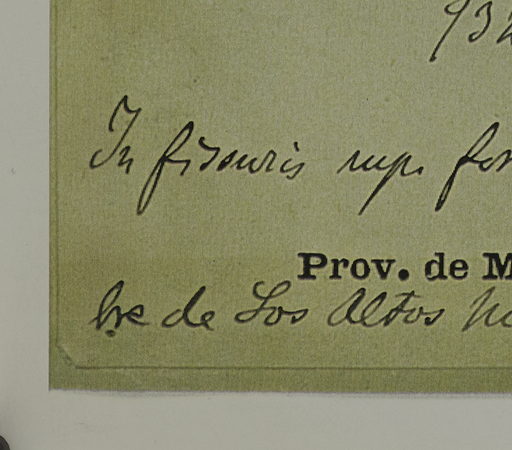 932
In fissuris rup. for
Prov. de M
bre de Los Altos